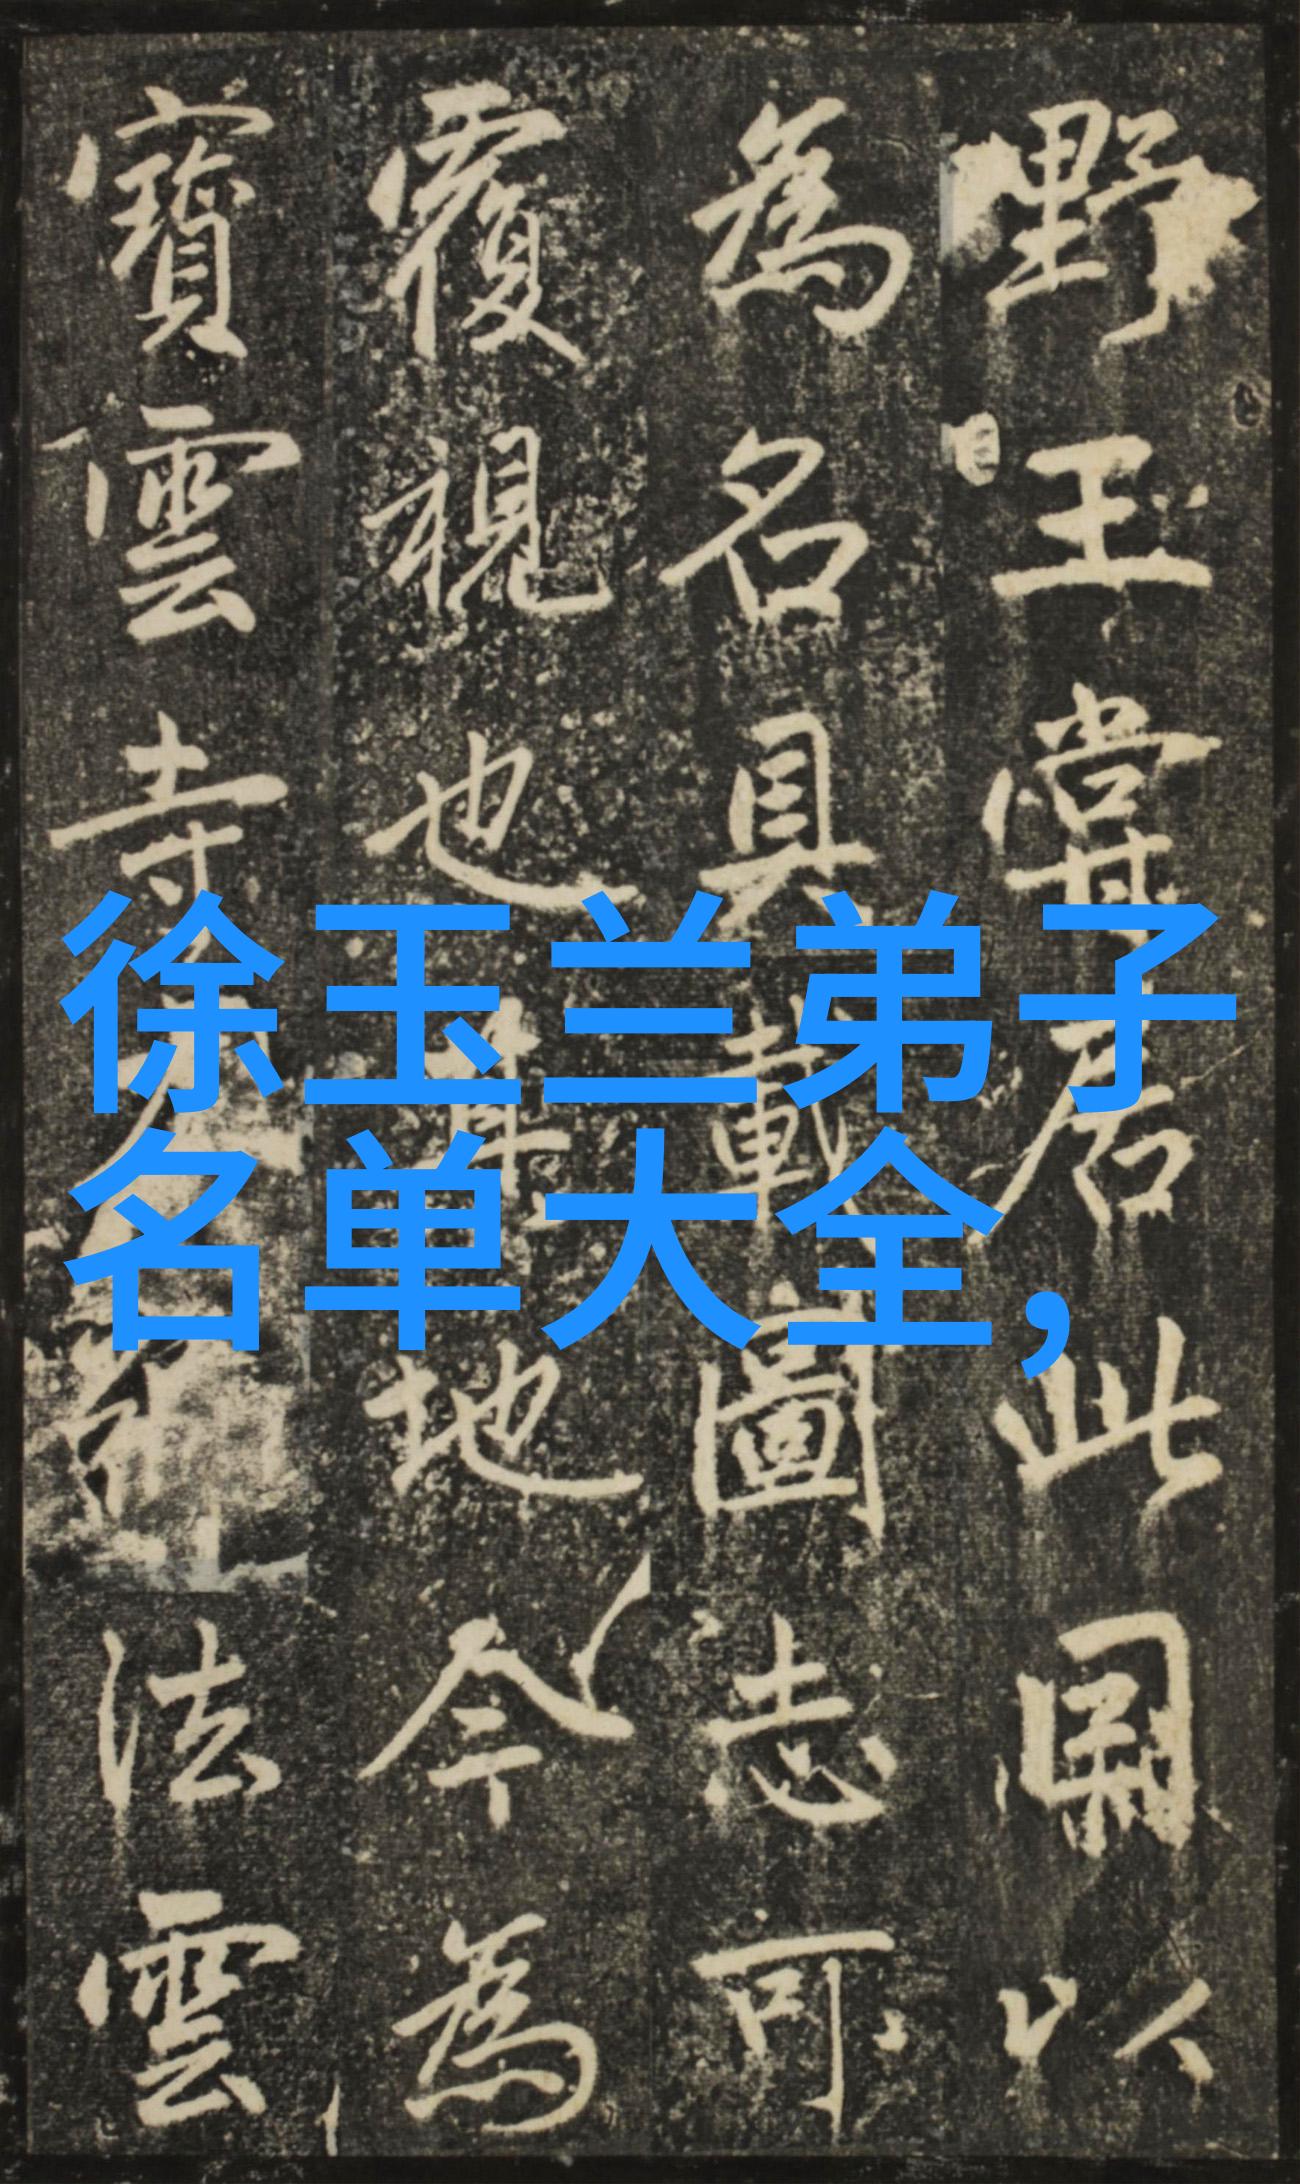 野王嘗居此以
為名具載圖志可
覆視也地今為
寶雲寺法雲
徐玉兰弟子
名单大全,